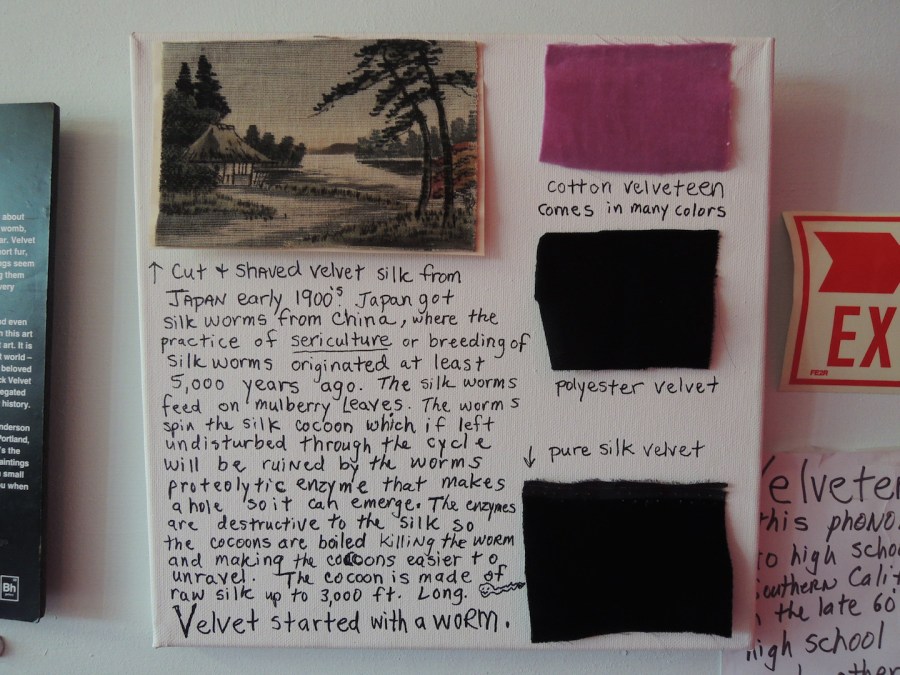 about
womb,
ar. Velvet
ort fur,
gs seem
g them
very
d even
n this art
art. It is
t world –
beloved
ck Velvet
egated
history.
nderson
Portland,
's the
aintings
small
u when
Bh
↑ Cut + Shaved velvet silk from
JAPAN early 1900's. Japan got
silk worms from China, where the
practice of sericulture or breeding of
silk worms originated at least
5,000 years ago. The silk worms
feed on mulberry Leaves. The worms
spin the silk cocoon which if left
undisturbed through the cycle
will be ruined by the worms
proteolytic enzyme that makes
a hole so it can emerge. The enzymes
are destructive to the silk so
the cocoons are boiled killing the worm
and making the cocoons easier to
unravel. The cocoon is made of
raw silk up to 3,000 ft. Long.
Velvet started with a worm.
cotton velveteen
comes in many colors
polyester velvet
↓ pure silk velvet
EX
Velvete
this phono
to high schoo
Southern Calif
the late 60
high school